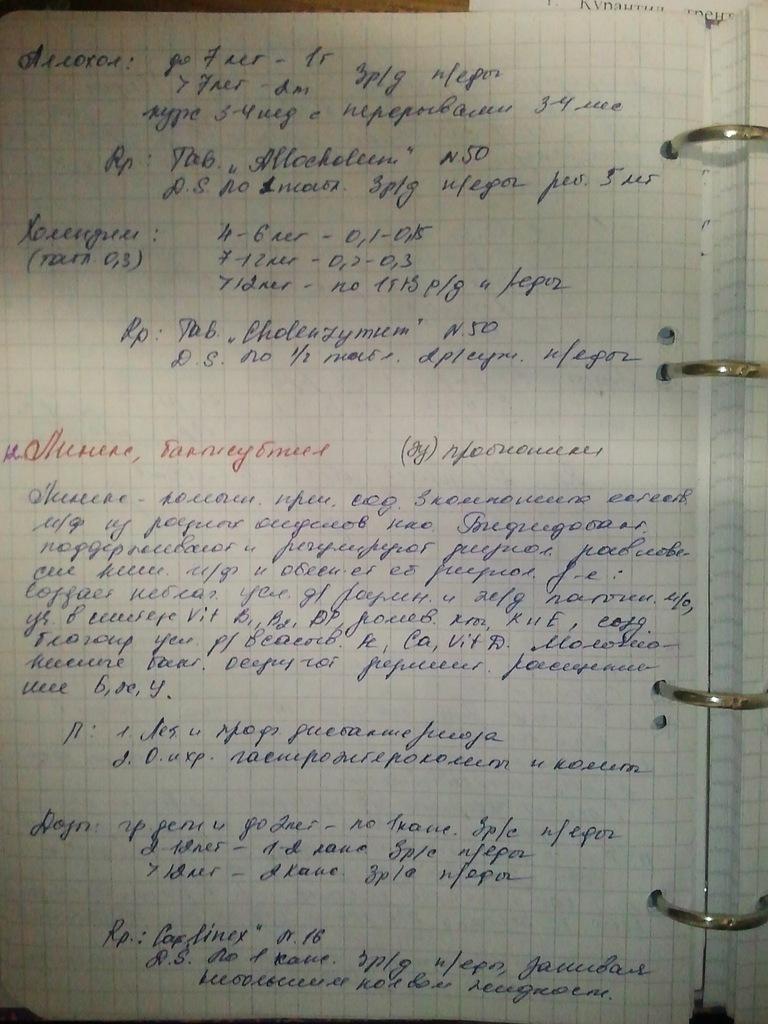 1. Курантил, трент
Аллохол: до 7 лет – 1т
>7лет – 2т 3р/д п/еды
курс 3-4 нед с перерывами 3-4 мес
Rp: Tab. „Allocholum" N50
D.S. по 1 табл. 3р/д п/еды реб. 5 лет
Холензим: 4-6 лет – 0,1-0,15
(табл 0,3) 7-12лет – 0,2-0,3
>12лет – по 1т 3 р/д п/еды
Rp: Tab. „Cholenzymum" N50
D.S. по 1/2 табл. 2р/сут. п/еды
12. Линекс, бактисубтил (эу) пробиотики
Линекс – комбин. преп. сод. 3 компонента естеств.
м/ф из разных отделов кто Бифидобакт.
поддерживают и регулируют физиол. равнове-
сие киш. м/ф и обеспеч-ет её физиол. ф-е:
создает неблаг. усл. д/ размн. и ж/д патоген. м/о,
уч. в синтезе Vit B1, B2, РР, фолиев. к-ты, К и Е, созд.
благопр усл. д/ всасыв. Fe, Ca, Vit D. Молочно-
кислые бакт. осущ-ют фермент. расщепле-
ние Б, ж, У.
П: 1. Леч и проф. дисбактериоза
2. О. и хр. гастроэнтероколиты и колиты
Дозы: гр дети и до 2лет – по 1 капс. 3р/с п/еды
2-12лет – 1-2 капс 3р/с п/еды
>12лет – 2 капс. 3р/с п/еды
Rp.: Cap. „Linex" N.16
D.S. по 1 капс. 3р/д п/еды, запивая
небольшим кол вом жидкост.